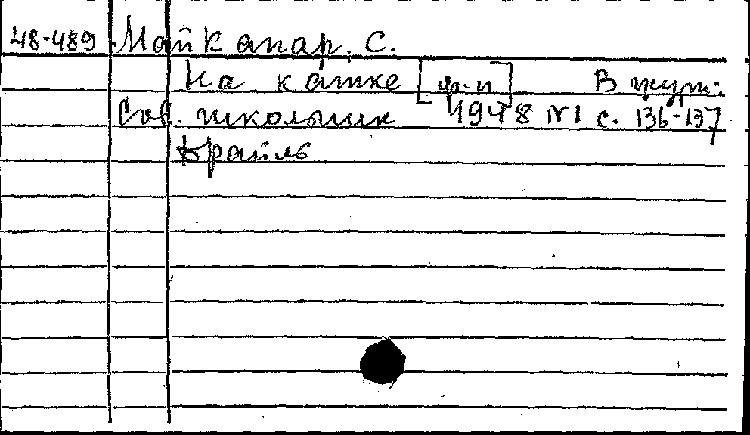 48-489 Майкапар, С.
На катке [ф-п] В журн:
Сов. школьник 1948 N1 с. 136-137
Брайль